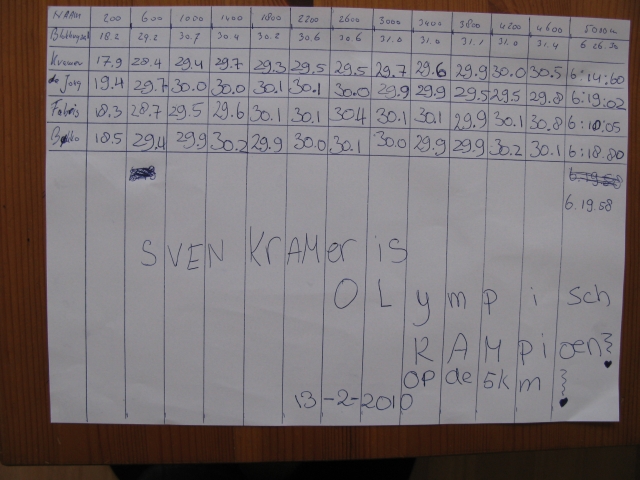 NAAM 200 600 1000 1400 1800 2200 2600 3000 3400 3800 4200 4600 5000m
18.2 29.2 30.7 30.4 30.2 30.6 30.6 31.0 31.0 31.1 31.0 31.4 6.26.30
Kramer 17.9 28.4 29.4 29.7 29.3 29.5 29.5 29.7 29.6 29.9 30.0 30.5 6:14:60
de Jong 19.4 29.7 30.0 30.0 30.1 30.1 30.0 29.9 29.9 29.5 29.5 29.8 6:19:02
Fabris 18.3 28.7 29.5 29.6 30.1 30.1 30.4 30.1 30.1 29.9 30.1 30.8 6:18:05
18.5 29.4 29.9 30.2 29.9 30.0 30.1 30.0 29.9 29.9 30.2 30.1 6:18.80
6.19.58
SVEN KRAMer is
OLympisch
KAMpioen
OP de 5km
13-2-2010